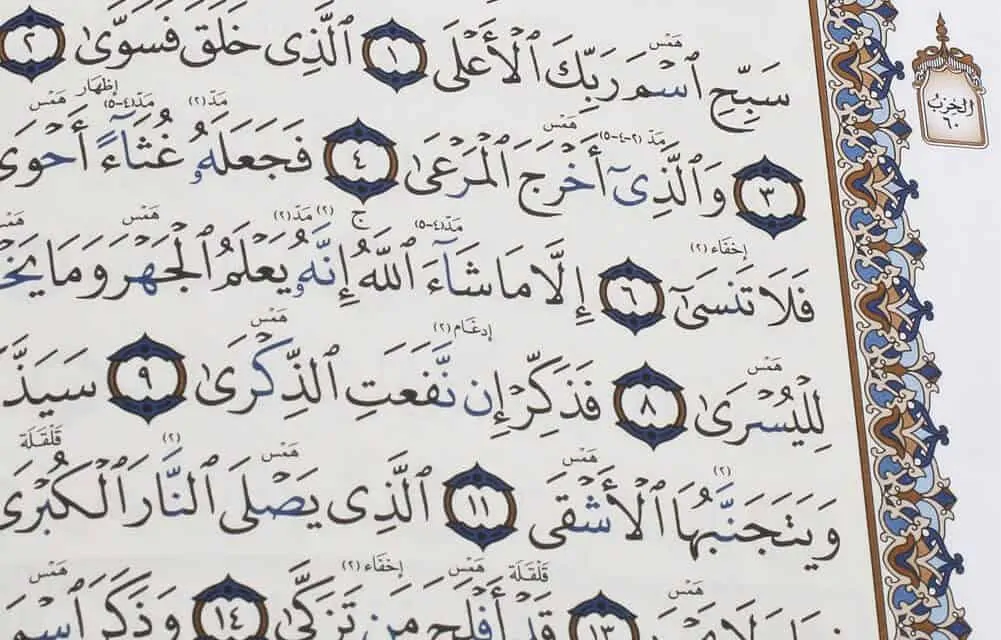 هَمْس
سَبِّحِ ٱسْمَ رَبِّكَ ٱلْأَعْلَى ١ ٱلَّذِى خَلَقَ فَسَوَّىٰ ٢
الحِزبُ
٦٠
مَدّ (٢-٤-٥) هَمْس مَدّ (٢) مَدّ (٤-٥) إظهار هَمْس
٣ وَٱلَّذِىٓ أَخْرَجَ ٱلْمَرْعَىٰ ٤ فَجَعَلَهُۥ غُثَآءً أَحْوَىٰ
إخفَاء (٢) مَدّ (٤-٥) ج (٢) مَدّ (٢) هَمْس هَمْس
فَلَا تَنسَىٰٓ ٦ إِلَّا مَا شَآءَ ٱللَّهُ إِنَّهُۥ يَعْلَمُ ٱلْجَهْرَ وَمَا يَخْ
هَمْس إدغَام (٢) هَمْس
لِلْيُسْرَىٰ ٨ فَذَكِّرْ إِن نَّفَعَتِ ٱلذِّكْرَىٰ ٩ سَيَذَّ
(٢) هَمْس هَمْس (٢) قَلقَلَة
وَيَتَجَنَّبُهَا ٱلْأَشْقَى ١١ ٱلَّذِى يَصْلَى ٱلنَّارَ ٱلْكُبْرَىٰ
هَمْس قَلقَلَة هَمْس إخفَاء (٢) هَمْس
١٣ قَدْ أَفْلَحَ مَن تَزَكَّىٰ ١٤ وَذَكَرَ ٱسْمَ